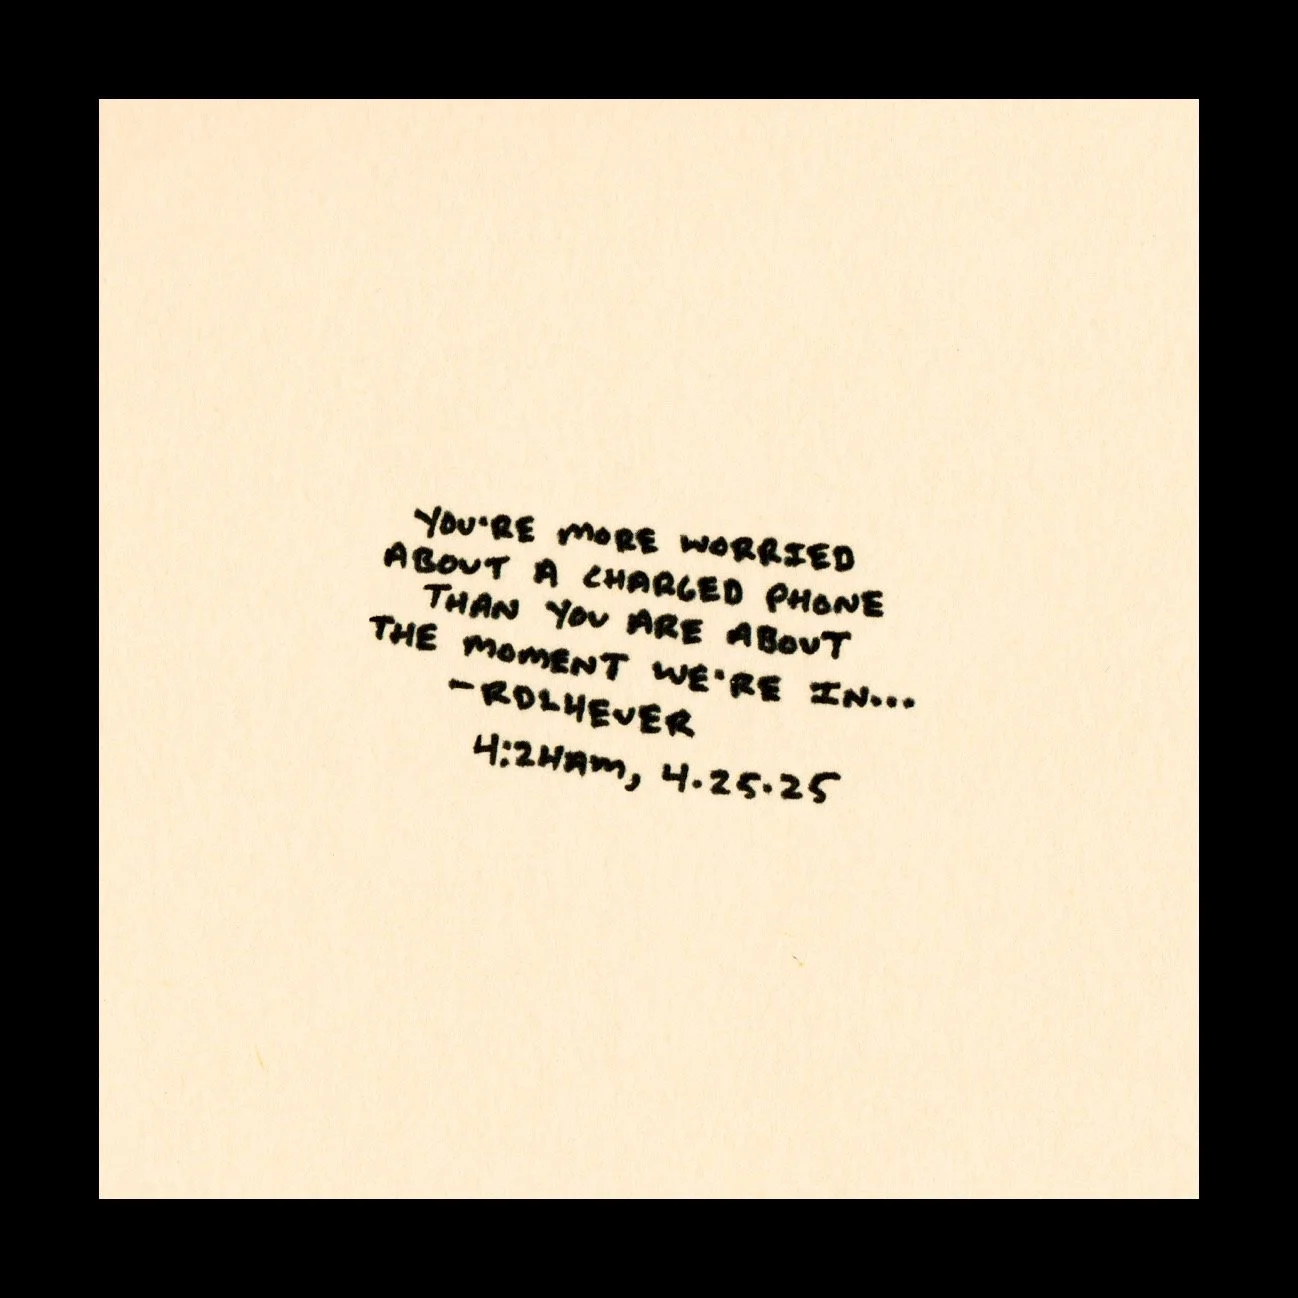 YOU'RE MORE WORRIED
ABOUT A CHARGED PHONE
THAN YOU ARE ABOUT
THE MOMENT WE'RE IN...
-RDLHEVER
4:24AM, 4.25.25